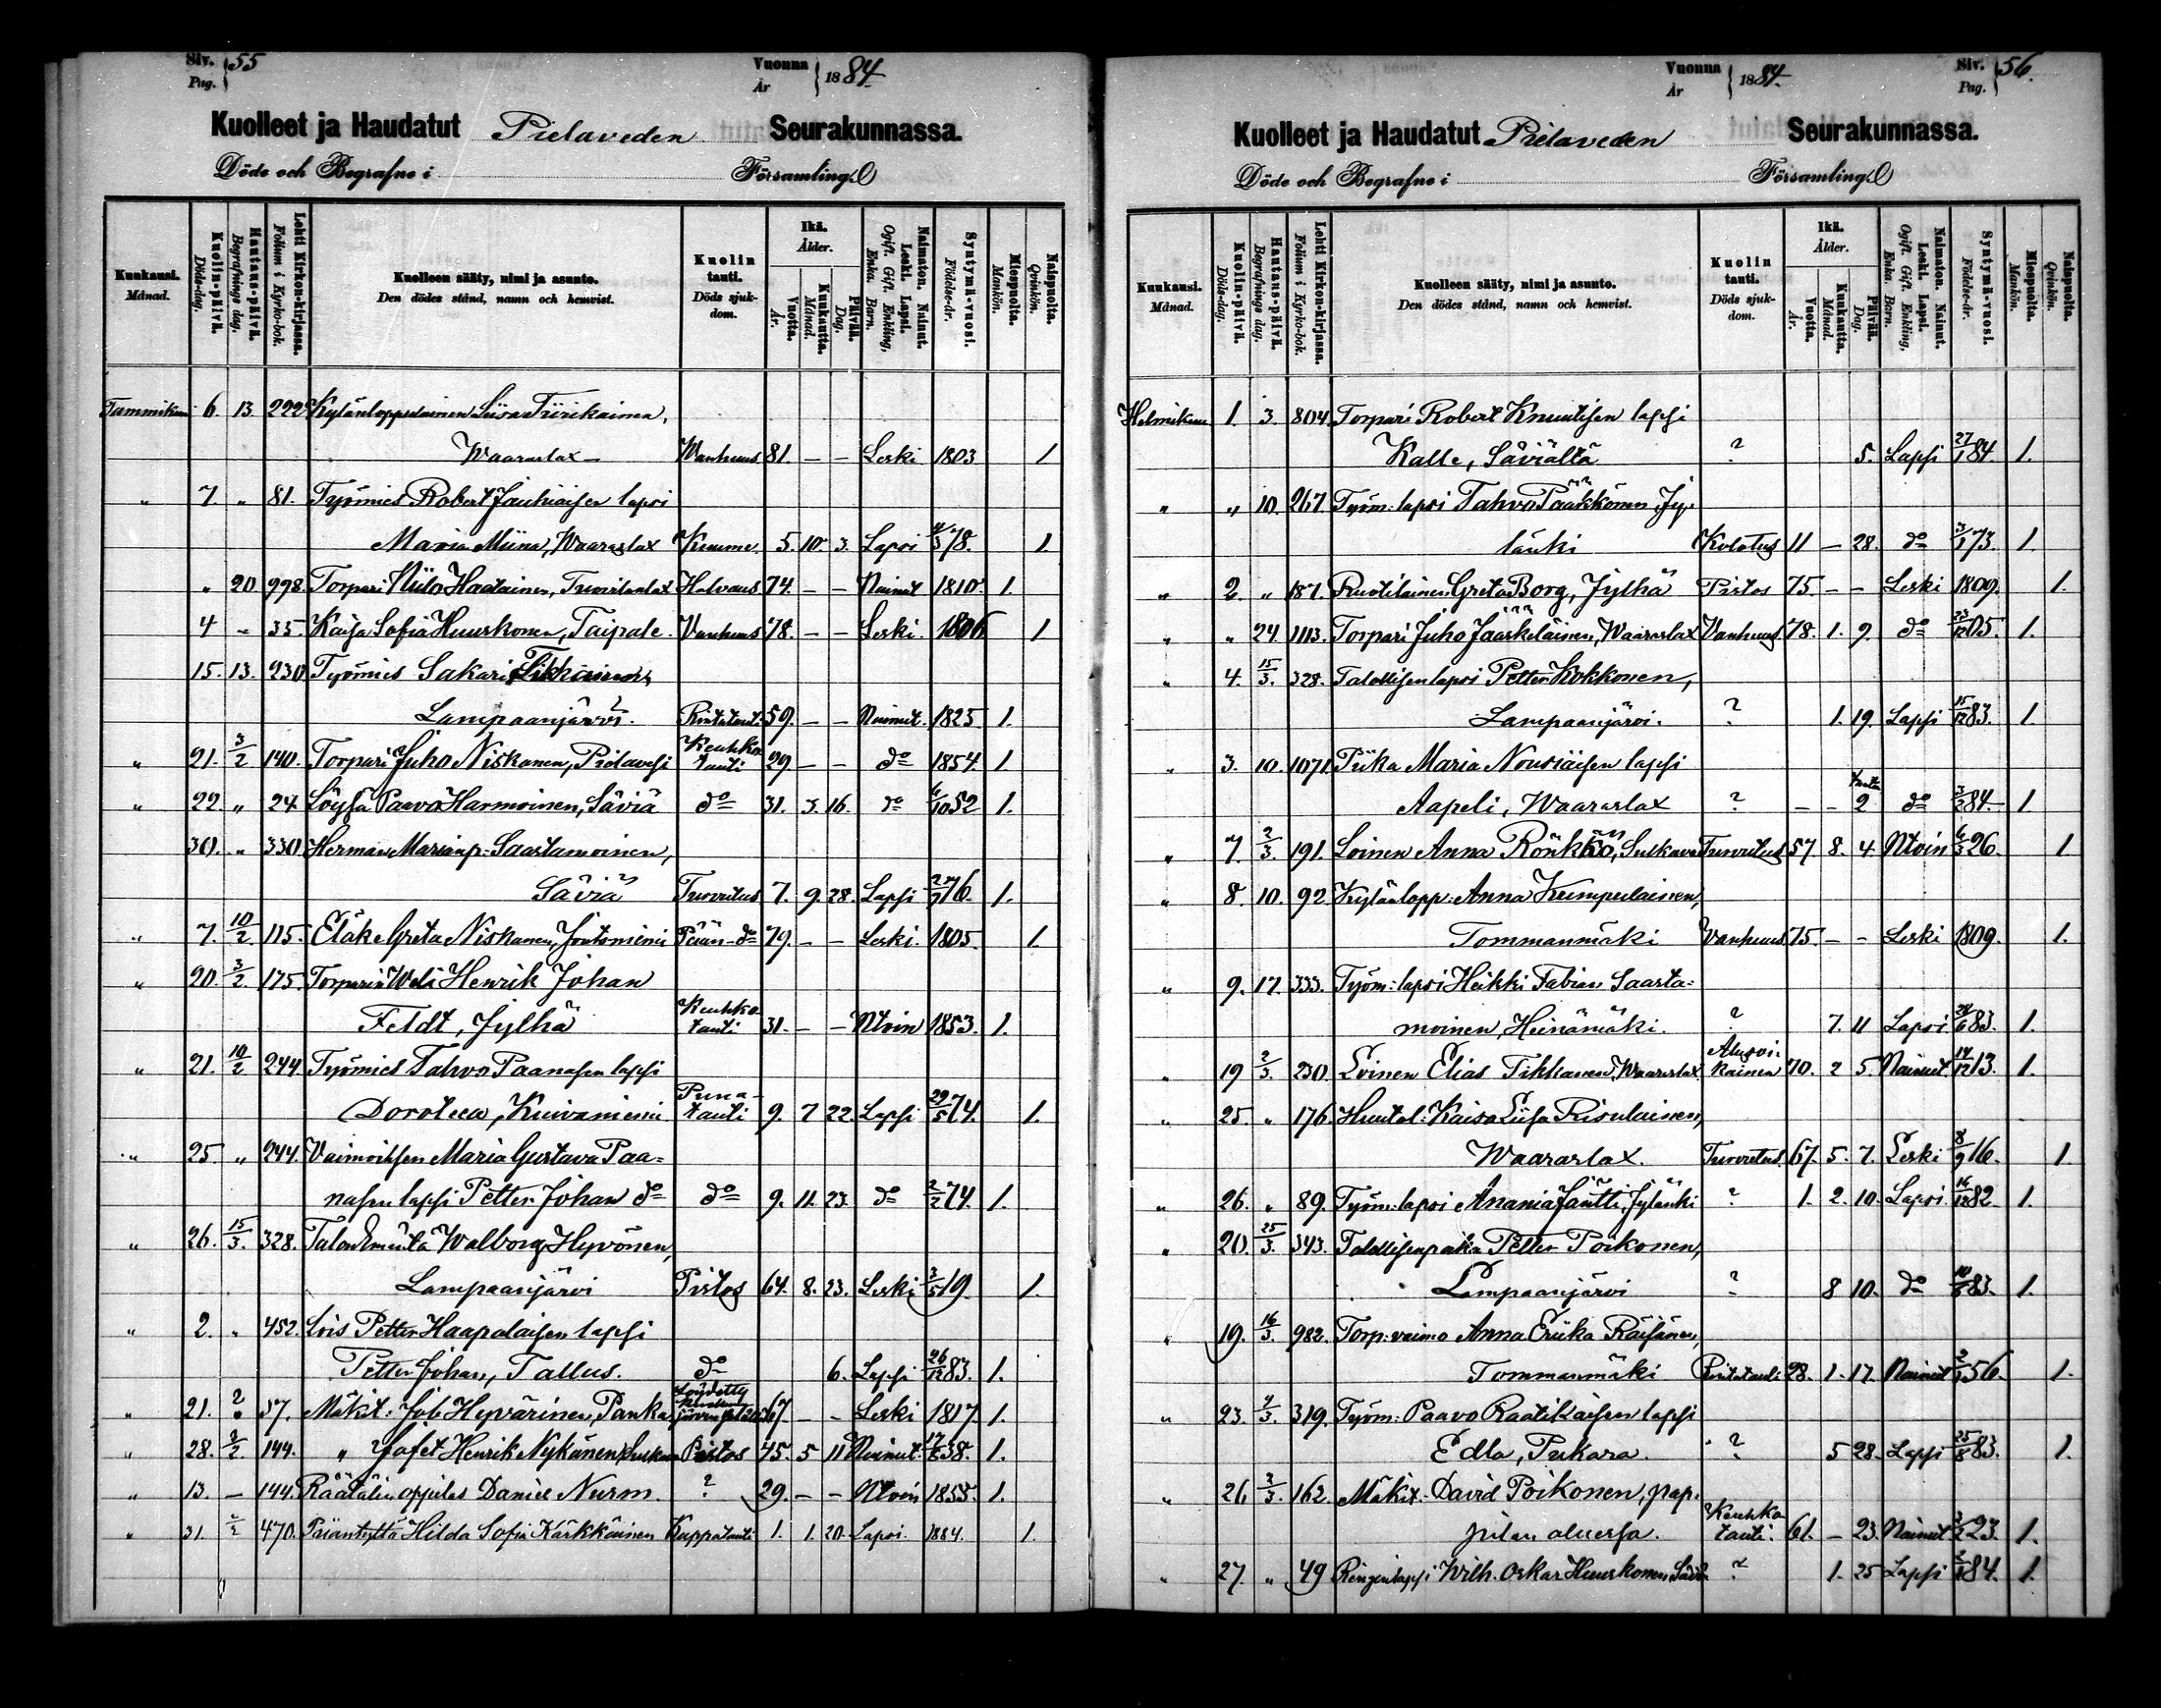 Siv. Pag. } 55 Vuonna År } 1884.
Kuolleet ja Haudatut Pielaveden Seurakunnassa.
Döde och Begrafne i Församling.
Kuukausi. Månad. Kuolin-päivä. Döds-dag. Hautaus-päivä. Begrafnings dag. Lehti Kirkon-kirjassa. Folium i Kyrko-bok. Kuolleen sääty, nimi ja asunto. Den dödes stånd, namn och hemvist. Kuolin tauti. Döds sjukdom. Ikä. Ålder. Vuotta. År. Kuukautta. Månad. Päivää. Dag. Naimaton. Nainut. Leski. Lapsi. Ogift. Gift. Enkling, Enka. Barn. Syntymä-vuosi. Födelse-år. Miespuolta. Mankön. Naispuolta. Qvinkön.
Tammikuu 6. 13. 222 Kylänloppulainen Liisa Tiirikainen,
Waaraslax Vanhuus 81. – – Leski 1803 1
" 7. " 81. Työmies Robert Jauhiaisen lapsi
Maria Miina, Waaraslax Kuume 5. 10. 3. Lapsi 4/3 78. 1.
" 20. 998. Torpari Niilo Haatainen, Halvaus 74. – – Nainut 1810. 1.
4 " 35. Kaisa Sofia Huuskonen, Taipale. Vanhuus 78. – – Leski. 1806. 1
15. 13. 230 Työmies Sakari Tikkainen,
Lampaanjärvi. Rintataut. 59. – – Nainut. 1825. 1.
" 21. 3/2 140. Torpari Juho Niskanen, Pielavesi Keuhkotauti 29. – – do 1854. 1
" 22. " 24 Löysä Paavo Harmoinen, Säviä do 31. 3. 16. do 6/10 52 1.
30. " 330. Herman Saastamoinen,
Säviä Turvutus 7. 9. 28. Lapsi 76. 1.
" 7. 10/2 115. Eläke Greta Niskanen, Joutsenniemi Pään-do 79. – – Leski. 1805. 1.
" 20. 3/2 175. Torparin Weli Henrik Johan
Feldt, Jylhä Keuhkotauti 31. – – Ntoin 1853. 1.
" 21. 10/2 244 Työmies Tahvo Paanasen lapsi
Dorotea, Kuivaniemi Punatauti 9. 7 22. Lapsi 29/5 74. 1.
" 25. " 244. Vaimoihsen Maria Gustava Paa=
nasen lapsi Petter Johan do do 9. 11. 23. do 2/2 74. 1.
" 26. 15/3. 328. Talon Emäntä Walborg Hyvönen,
Lampaanjärvi Pistos 64. 8. 23. Leski 3/5 19. 1.
" 2. " 452. Lois Petter Haapalaisen lapsi
Petter Johan, Tallus. do 6. Lapsi 26/12 83. 1.
" 21. 2/" 37. Mäkit: Job Hyvärinen, Panka Löydetty kuolleena järven jäältä 67 – – Leski 1817 1.
" 28. 2/2 144. " Jafet Henrik Nykänen, Sulkava Pistos 45. 5 11 Nainut. 17/8 38. 1.
" 13. – 144. Räätälin oppilas Daniel Nurm. ? 29. – – Ntoin 1855. 1.
" 31. 2/2 470. Hilda Sofia Kärkkäinen Kuppatauti 1. 1. 20. Lapsi. 1884. 1.
Vuonna År } 1884. Siv. Pag. } 56.
Kuolleet ja Haudatut Pielaveden Seurakunnassa.
Döde och Begrafne i Församling.
Kuukausi. Månad. Kuolin-päivä. Döds-dag. Hautaus-päivä. Begrafnings dag. Lehti Kirkon-kirjassa. Folium i Kyrko-bok. Kuolleen sääty, nimi ja asunto. Den dödes stånd, namn och hemvist. Kuolin tauti. Döds sjukdom. Ikä. Ålder. Vuotta. År. Kuukautta. Månad. Päivää. Dag. Naimaton. Nainut. Leski. Lapsi. Ogift. Gift. Enkling, Enka. Barn. Syntymä-vuosi. Födelse-år. Miespuolta. Mankön. Naispuolta. Qvinkön.
Helmikuu 1. 3. 804. Torpari Robert Knuutisen lapsi
Kalle, Säviältä ? 5. Lapsi 27/1 84. 1.
" " 10. 267. Työm: lapsi Tahvo Pääkkönen, Jy-
länki Kolotus 11 – 28. do 3/1 73. 1.
" 2. " 187. Ruotilainen Greta Borg, Jylhä Pistos 75 – – Leski 1809. 1.
" " 24. 1113. Torpari Juho Jääskeläinen, Waaraslax Vanhuus 78. 1. 9. do 23/12 05. 1.
" 4. 15/3. 328. Talollisen lapsi Petter Kokkonen,
Lampaanjärvi. ? 1. 19. Lapsi 15/12 83. 1.
" 3. 10. 1071. Piika Maria Nousiaisen lapsi
Aapeli, Waaraslax ? – – 2 do 3/2 84. 1
" 7. 2/3. 191. Loinen Anna Rönkkö, Sulkava Turvutus 57. 8. 4. Ntoin 6/3 26. 1
" 8. 10. 92. Kylänlopp: Anna Kumpulainen,
Tommanmäki Vanhuus 75. – – Leski 1809. 1.
" 9. 17. 333. Työm: lapsi Heikki Fabian Saasta=
moinen, Heinämäki. ? 7. 11 Lapsi. 28/6 83. 1.
" 19 2/3. 230. Loinen Elias Tikkanen, Waaraslax 70. 2 5. Nainut 14/12 13. 1.
" 25. " 176. Huutol: Kaisa Liisa Risulainen,
Waaraslax. Turvotus. 67. 5. 7. Leski 8/9 16. 1.
" 26. " 89. Työm: lapsi Anania Jäntti, Jylänki ? 1. 2. 10. Lapsi. 16/12 82. 1.
" 20. 25/3. 343. Talollisenpoika Petter Poikonen,
Lampaanjärvi ? 8 10. do 10/6 83. 1.
" 19. 16/3. 982. Torp: vaimo Anna Erika Räisänen,
Tommanmäki Rintatauti 28. 1. 17. Nainut 2/1 56. 1.
" 23. 4/3. 319. Työm: Paavo Raatikaisen lapsi
Edla, Pukara. ? 5 28. Lapsi 25/8 83. 1.
" 26 3/3. 162. Mäkit: David Poikonen, pap-
pilan aluessa. Keuhkotauti. 61. – 23. Nainut 3/2 23. 1.
" 27. " 49 Rengin lapsi Wilh. Oskar Huuskonen, Säviä ? 1. 25 Lapsi 2/1 84. 1.